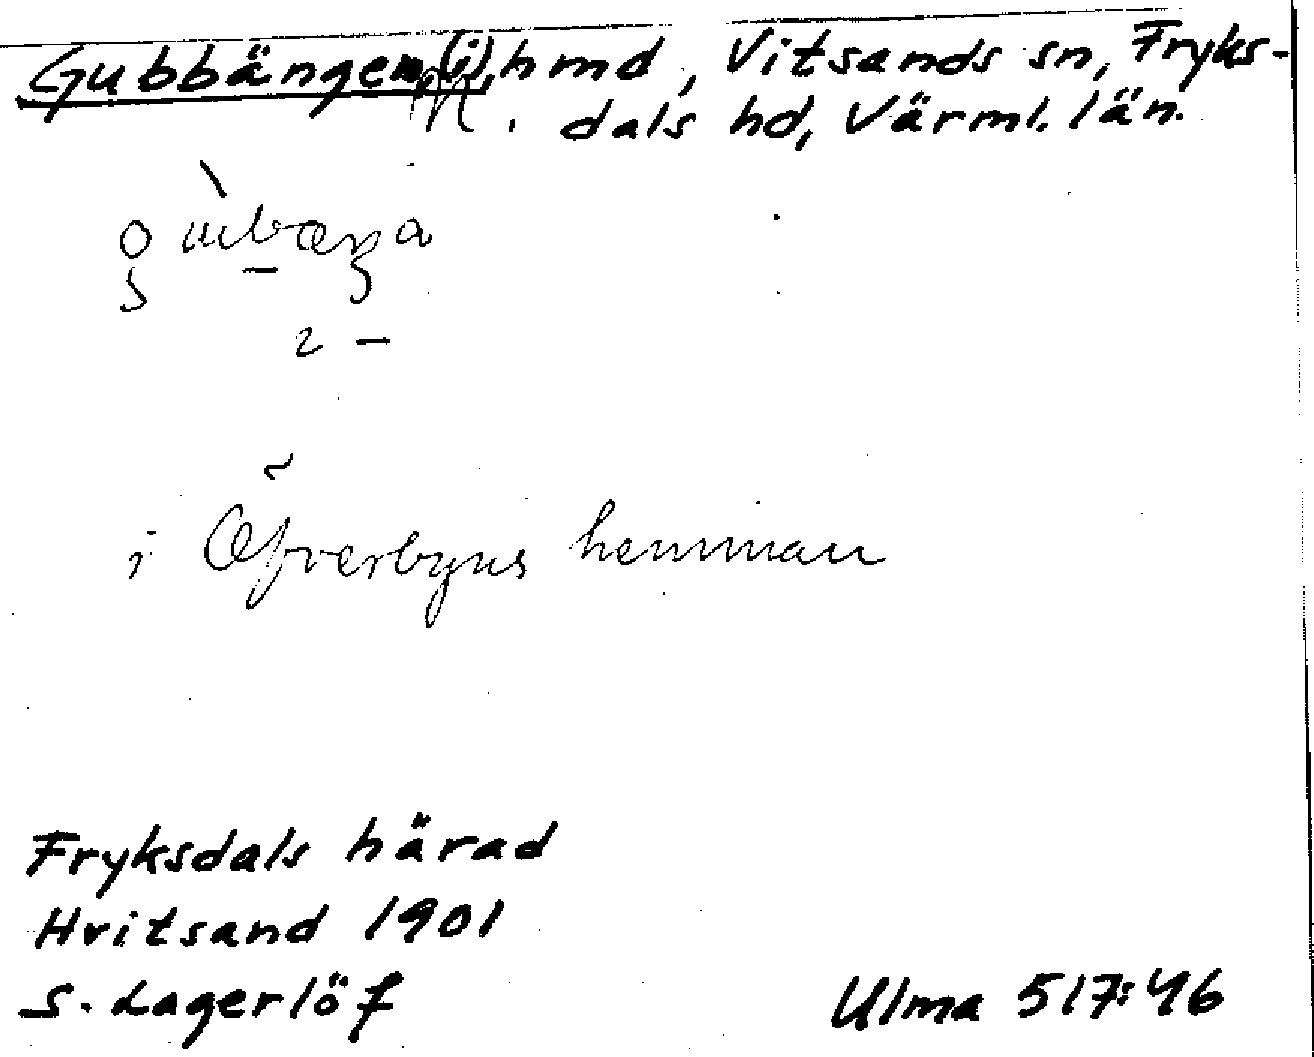 Gubbängen, (i), hmd, Vitsands sn, Fryks-
dals hd, Värml. län.
i Öfverbyns hemman
Fryksdals härad
Hvitsand 1901
S. Lagerlöf
Ulma 517:46